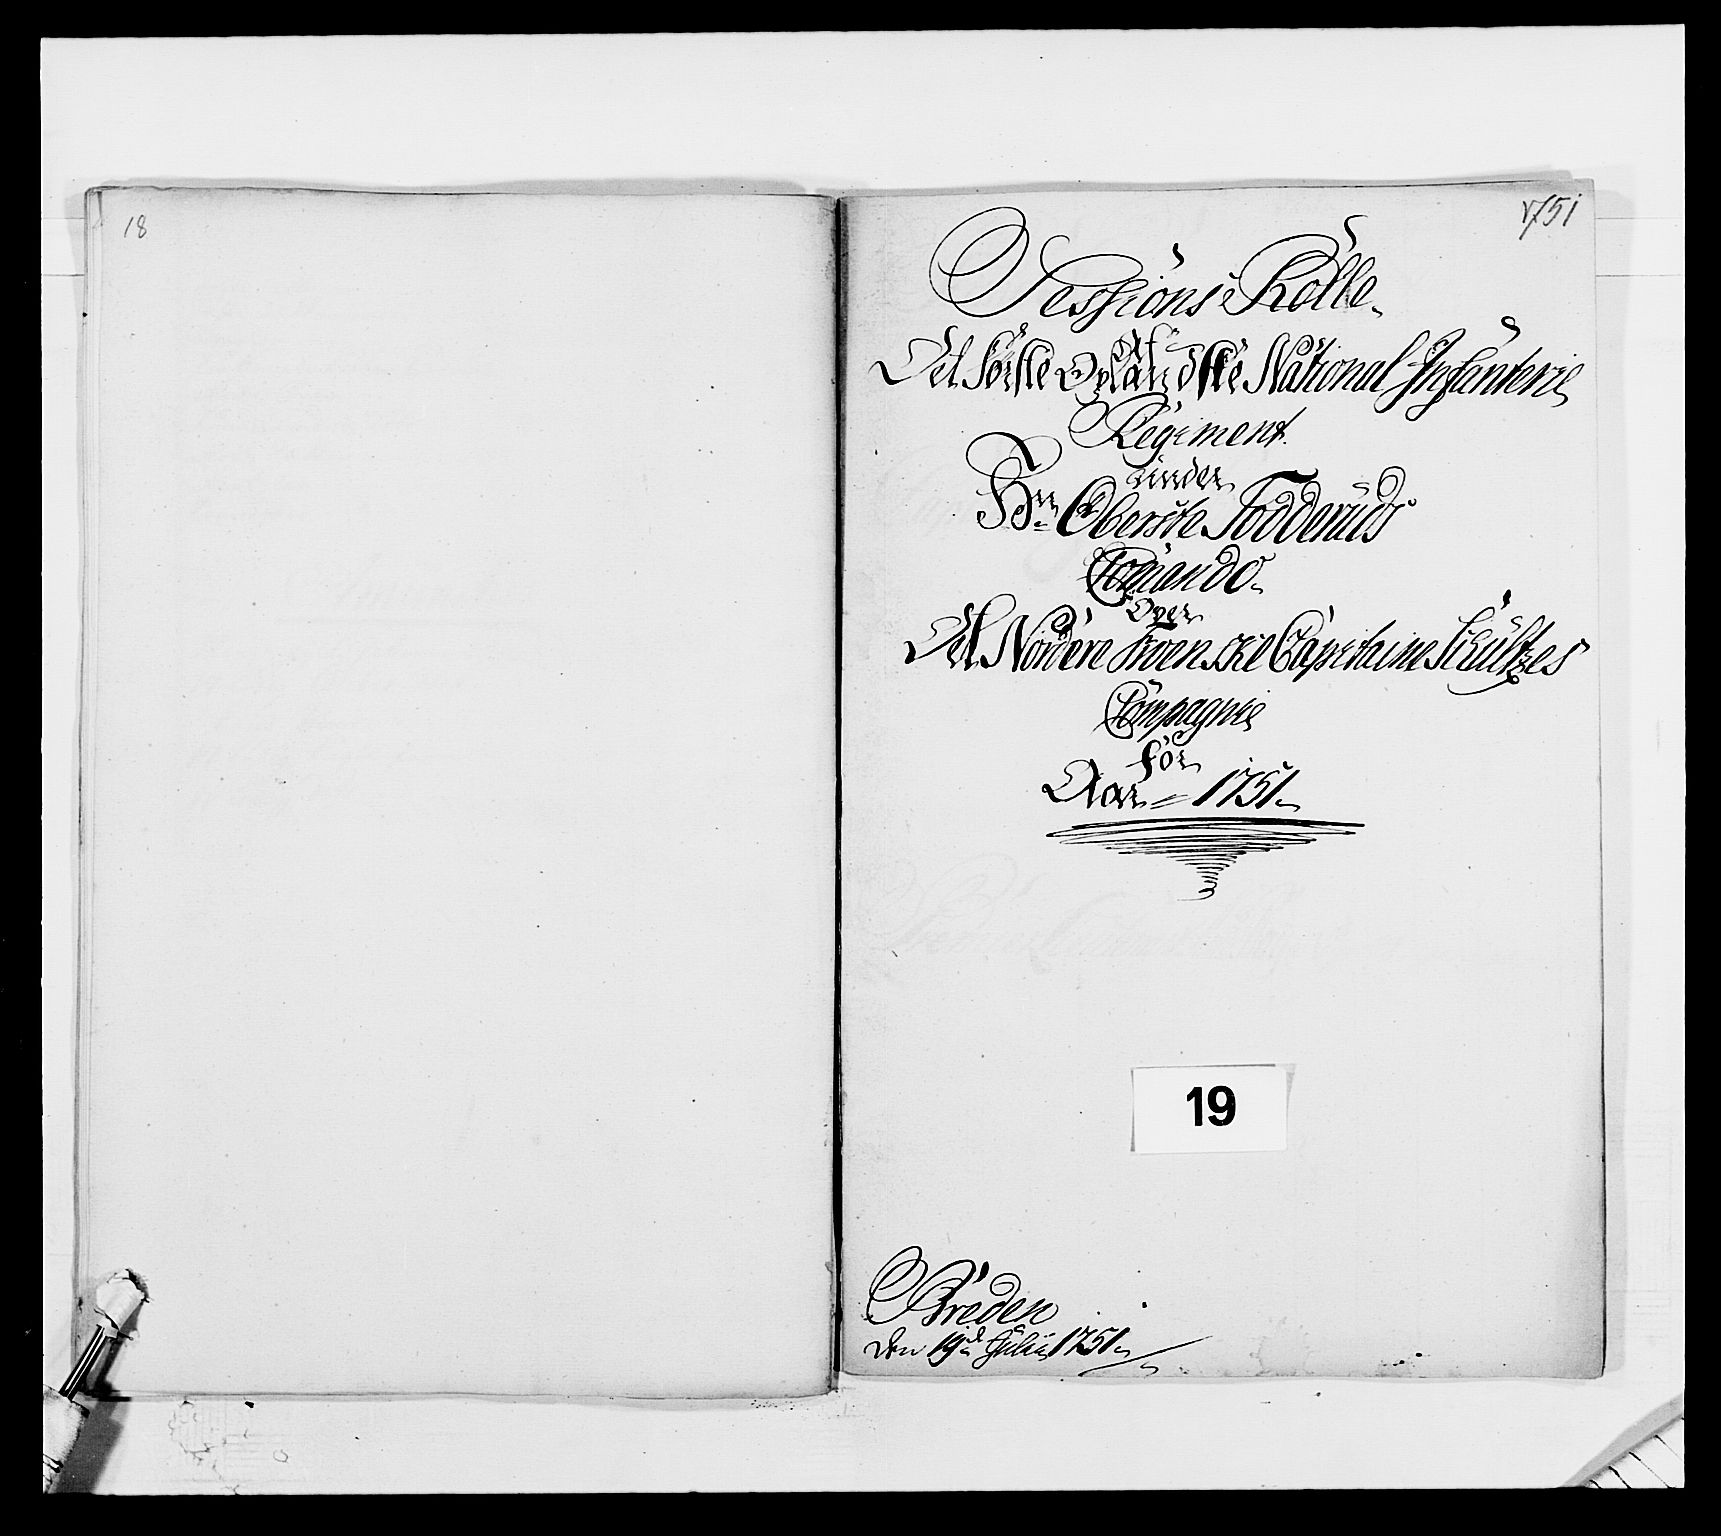 18
1751
Sessions Rolle
Af
Det Første Oplandske National Infanterie
Regiment
under
Hrr Oberste Todderuds
Comando
Over
Det Nordere Froenske Capitaine Schultzes
Compagnie
for
Aar = 1751
19
Breden
den 19d Julii 1751